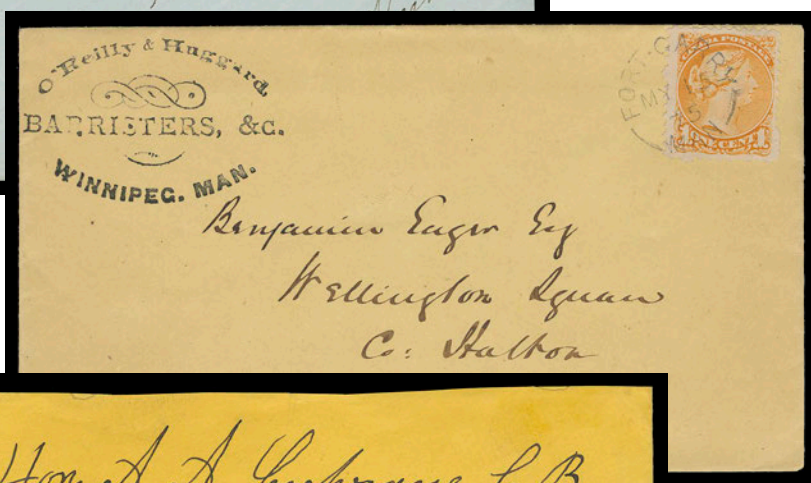 O'Reilly & Huggard,
BARRISTERS, &c.
WINNIPEG. MAN.
FORT-GARRY
MY
CANADA POSTAGE
1 ONE CENT 1
Benjamin Eager Esq
Wellington Square
Co: Halton
Hon A A